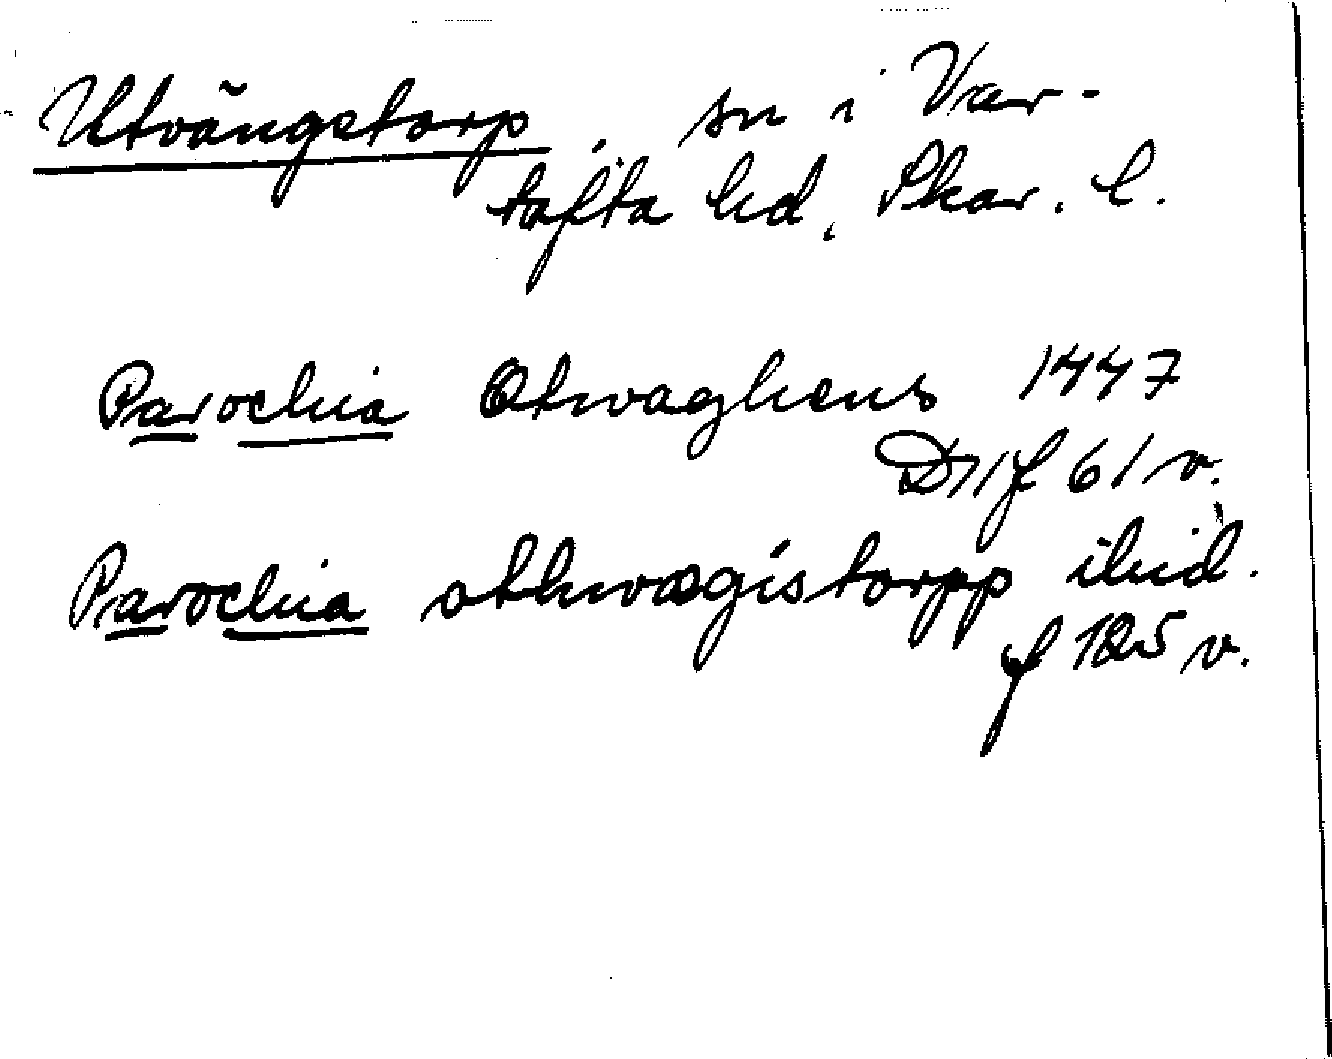 Utvängstorp, sn i Var-
tofta hd, Skar. l.
Parochia Otwaghens 1447
D 11 f 61 v.
Parochia othwægistorpp ibid.
f 125 v.